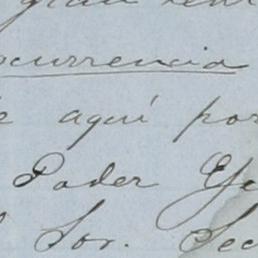 gran
ocurrencia
aquí por
Poder Eje
Sor. Sec